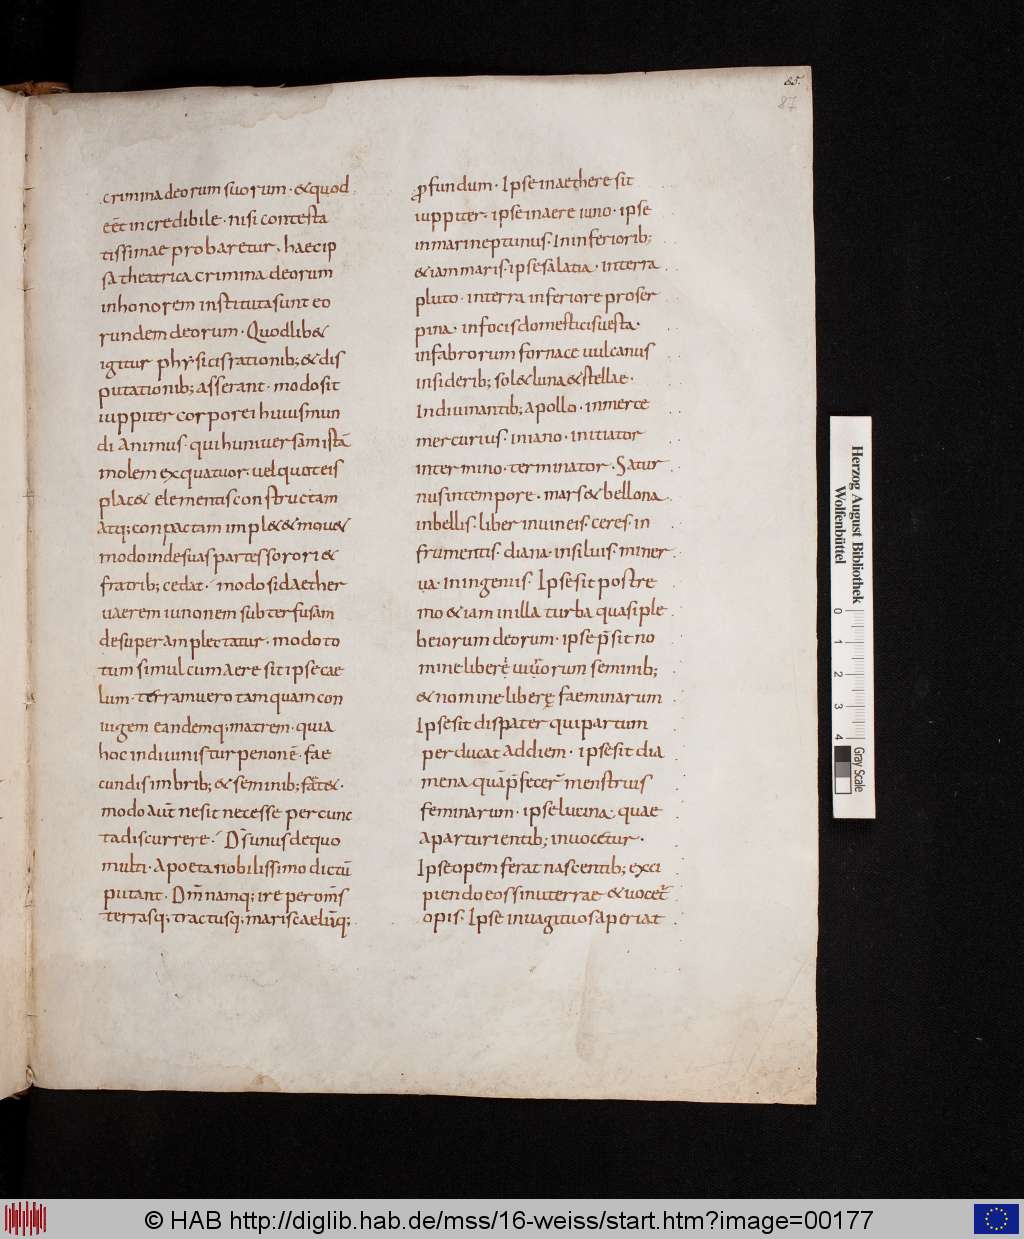 85.
87
crimina deorum suorum · &quod
eēt incredibile · nisi contesta
tissimae probaretur · haec ip
sa theatrica crimina deorum
inhonorem instituta sunt eo
rundem deorum · Quodlib&
igitur physicis rationib; & dis
putationib; asserant · modo sit
iuppiter corporei huius mun
di Animus · qui huniuersam istā
molem exquatuor · uel quoteis
plac& elementis constructam
Atq; conpactam impl& & mou&
modo inde suas partes sorori &
fratrib; cedat · modo sid Aether
ut aerem iunonem subterfusam
desuper amplectatur · modo to
tum simul cum Aere sit ipse cae
lum · terram uero tamquam con
iugem eandemq; matrem · quia
hoc indiuinis turpe non ē · fae
cundis imbrib; & seminib; fæt& ·
modo aut ne sit necesse per cunc
ta discurrere · Ds̄ unus de quo
multi · Apoeta nobilissimo dictū
putant · Dm̄ namq; ire per om̄s
terrasq; tractusq; maris caelūq;
profundum · Ipse in aethere sit
iuppiter · ipse in aere iuno · ipse
in mari neptunus · In inferiorib;
& iam maris · ipse salatia · interra
pluto · interra inferiore proser
pina · infocis domesticis uesta ·
infabrorum fornace uulcanus
insiderib; sol & luna & stellae ·
Indiuinantib; apollo · inmerce
mercurius · iniano · initiator
intermino · terminator · Satur
nus intempore · mars & bellona
inbellis · liber inuineis · ceres · in
frumentis · diana · insiluis · miner
ua · Iningeniis · Ipse sit postre
mo & iam inilla turba quasi ple
beiorum deorum · ipse p̄sit no
mine liberi uirorum seminib;
& nomine liberę faeminarum
Ipse sit dispater qui partum
perducat ad diem · ipse sit dia
mena quā p̄fecer̄ menstruis
feminarum · ipse lucina · quae
Aparturientib; inuocetur ·
Ipse opem ferat nascentib; exci
piendo eos sinu terrae & uocet̄
opis · Ipse inuagitu os aperiat
Herzog August Bibliothek
Wolfenbüttel
0 1 2 3 4
Gray Scale
© HAB http://diglib.hab.de/mss/16-weiss/start.htm?image=00177